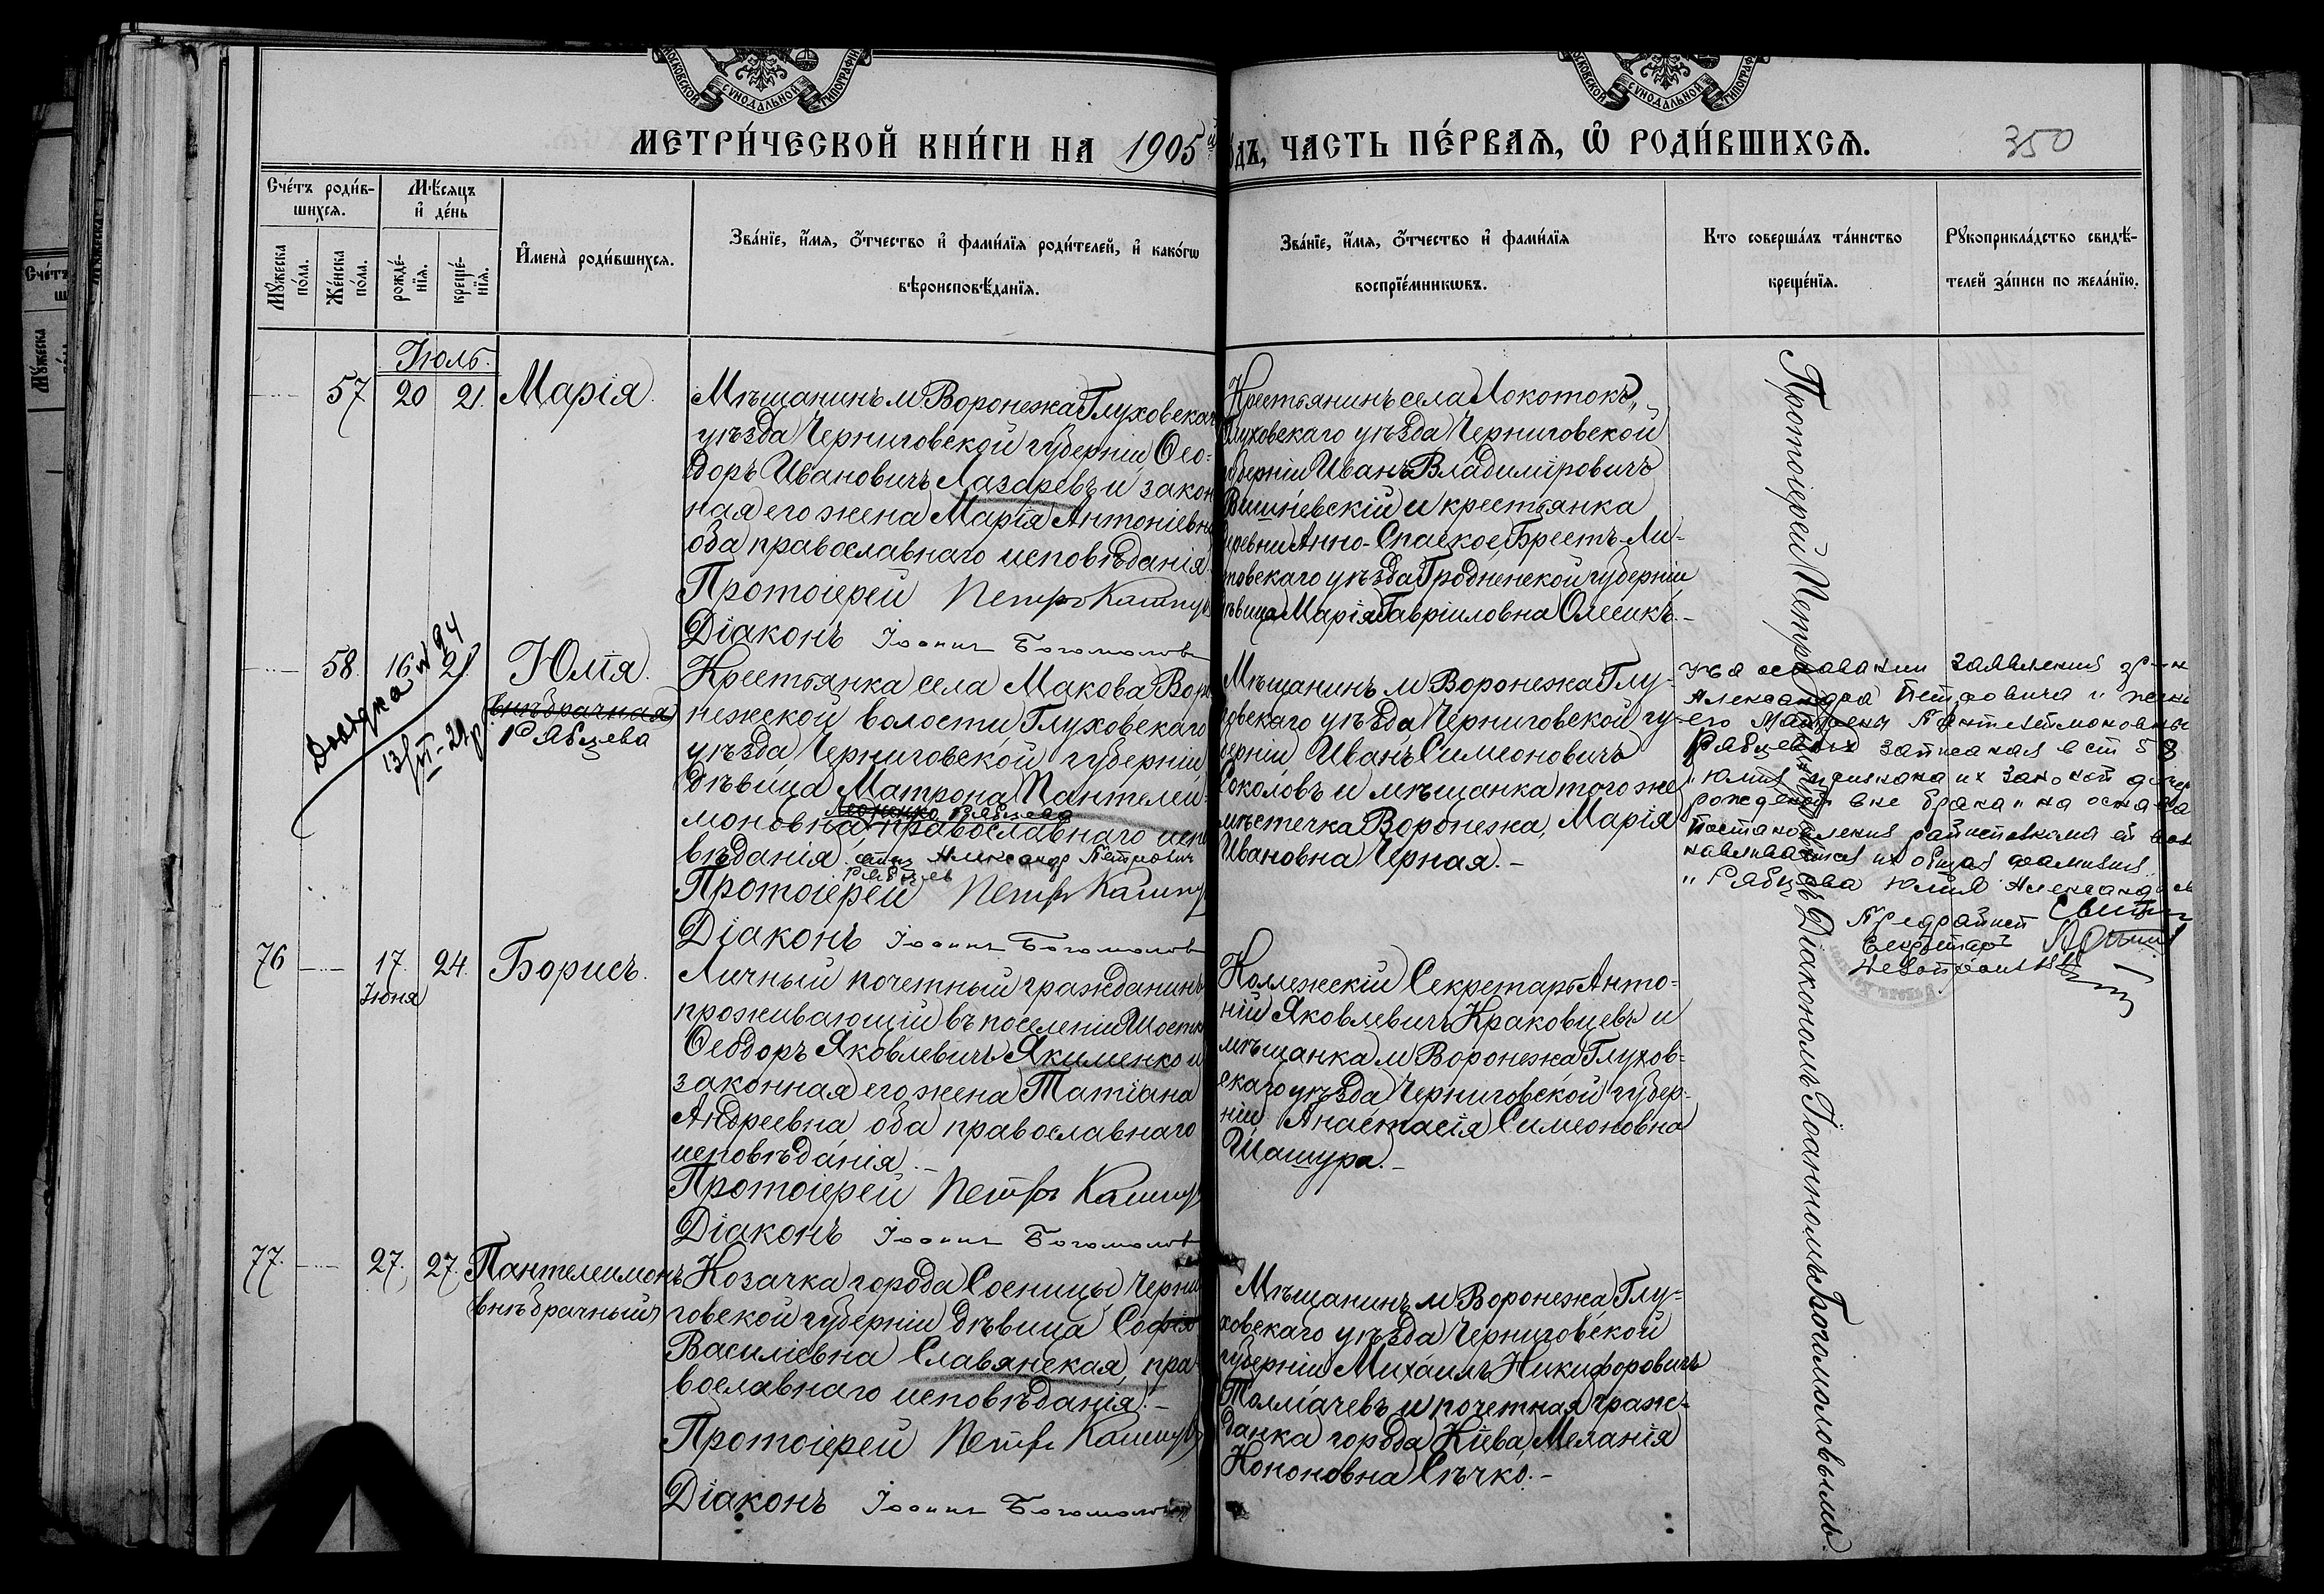 МОСКОВСКОЙ СѴНОДАЛЬНОЙ ТИПОГРАФІИ
МОСКОВСКОЙ СѴНОДАЛЬНОЙ ТИПОГРАФІИ
МЕТРИ́ЧЕСКОЙ КНИ́ГИ НА 1905й
дъ, ЧАСТЬ ПЕ́РВАѦ, Ѡ РОДИ́ВШИХСѦ.
350
Сче́тъ роди́в-
шихсѧ.
Мѣ́сѧцъ
и҆ де́нь
Мꙋ́жеска
по́ла.
Же́нска
по́ла.
рожде́-
нїѧ.
креще́-
нїѧ.
И҆мена̀ роди́вшихсѧ.
Зва́нїе, и҆́мѧ, ѻ҆́тчество и҆ фами́лїѧ роди́телей, и҆ како́гѡ
вѣроисповѣ́данїѧ.
Зва́нїе, и҆́мѧ, ѻ҆́тчество и҆ фами́лїѧ
воспрїе́мникѡвъ.
Кто соверша́лъ та́инство
креще́нїѧ.
Рꙋкоприкла́дство свидѣ́-
телей за́писи по жела́нїю.
Іюль.
57 20 21. Марія.
Мѣщанинъ м. Воронежа Глуховскаго
уѣзда Черниговской губерніи Ѳео-
доръ Ивановичъ Лазаревъ и закон
ная его жена Марія Антоніевна
оба православнаго исповѣданія.
Протоіерей Петръ Кашпур
Діаконъ Іоаннъ Богомолов
Крестьянинъ села Локотокъ,
Глуховскаго уѣзда Черниговской
губерніи Иванъ Владиміровичъ
Вишневскій и крестьянка
деревни Анно-Спаское, Брестъ-Ли-
товскаго уѣзда Гродненской губерніи
дѣвица Марія Гавріиловна Олесикъ.-
Протоіерей Петръ
Діакономъ Іоанномъ Богомоловымъ.
58. 16 21 Юлія.
(внѣбрачная)
Рябцева
13/VI-29 р
№ 94
Крестьянка села Макова Воро
нежской волости Глуховскаго
уѣзда Черниговской губерніи
дѣвица Матрона Пантелеи-
Рябцева
моновна, православнаго испо
вѣданія. отец Александр Петрович
Рябцев
Протоіерей Петръ Кашпур
Діаконъ Іоаннъ Богомолов
Мѣщанинъ м Воронежа Глу-
ховскаго уѣзда Черниговской гу-
берніи Иванъ Симеоновичъ
Соколовъ и мѣщанка того же
мѣстечка Воронежа, Марія
Ивановна Черная.-
основании заявления
Александра Петровича и
его Матрены Пантелеймоновны
Рябцевых записаная в ст 58
"Юлия признана их
рожденой вне брака" на
их общая фамилия
"Рябцева Юлия
Секретарь
76 17. 24. Борисъ.
Іюня
Личный почетный гражданинъ
проживающій въ поселеніи Шостк
Ѳеодоръ Яковлевичъ Якименко и
законная его жена Татіана
Андреевна оба православнаго
исповѣданія.-
Протоіерей Петръ Кашпур
Діаконъ Іоаннъ Богомолов
Коллежскій Секретарь Анто-
ній Яковлевичъ Краковцевъ и
мѣщанка м Воронежа Глухов-
скаго уѣзда Черниговской губер-
ніи Анастасія Симеоновна
Шашура.-
77. 27. 27. Пантелеимонъ
(внѣбрачный)
Козачка города Сосницы Черни
говской губерніи дѣвица Софія
Василіевна Славянская, пра-
вославнаго исповѣданія.-
Протоіерей Петръ Кашпур
Діаконъ Іоаннъ Богомолов
Мѣщанинъ м Воронежа Глу-
ховскаго уѣзда Черниговской
губерніи Михаилъ Никифоровичъ
Толмачевъ и почетная граж-
данка города Кіева, Меланія
Кононовна Сѣчко.-